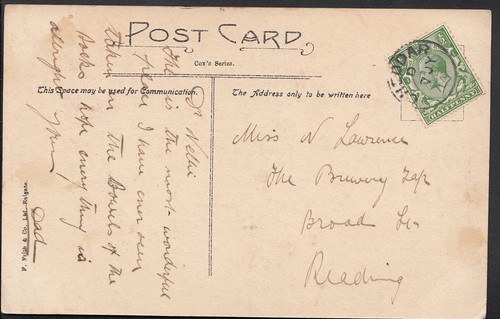 POST CARD
Cox's Series.
This Space may be used for Communication.
The Address only to be written here
Dr Nellie
this is the most wonderful
place I have ever seen
taken in the Bowels of the
rocks hope everything is
alright yours
Dad
Miss N Lawrence
The Brewery Tap
Broad St
Reading
CHEDDAR
HALFPENNY